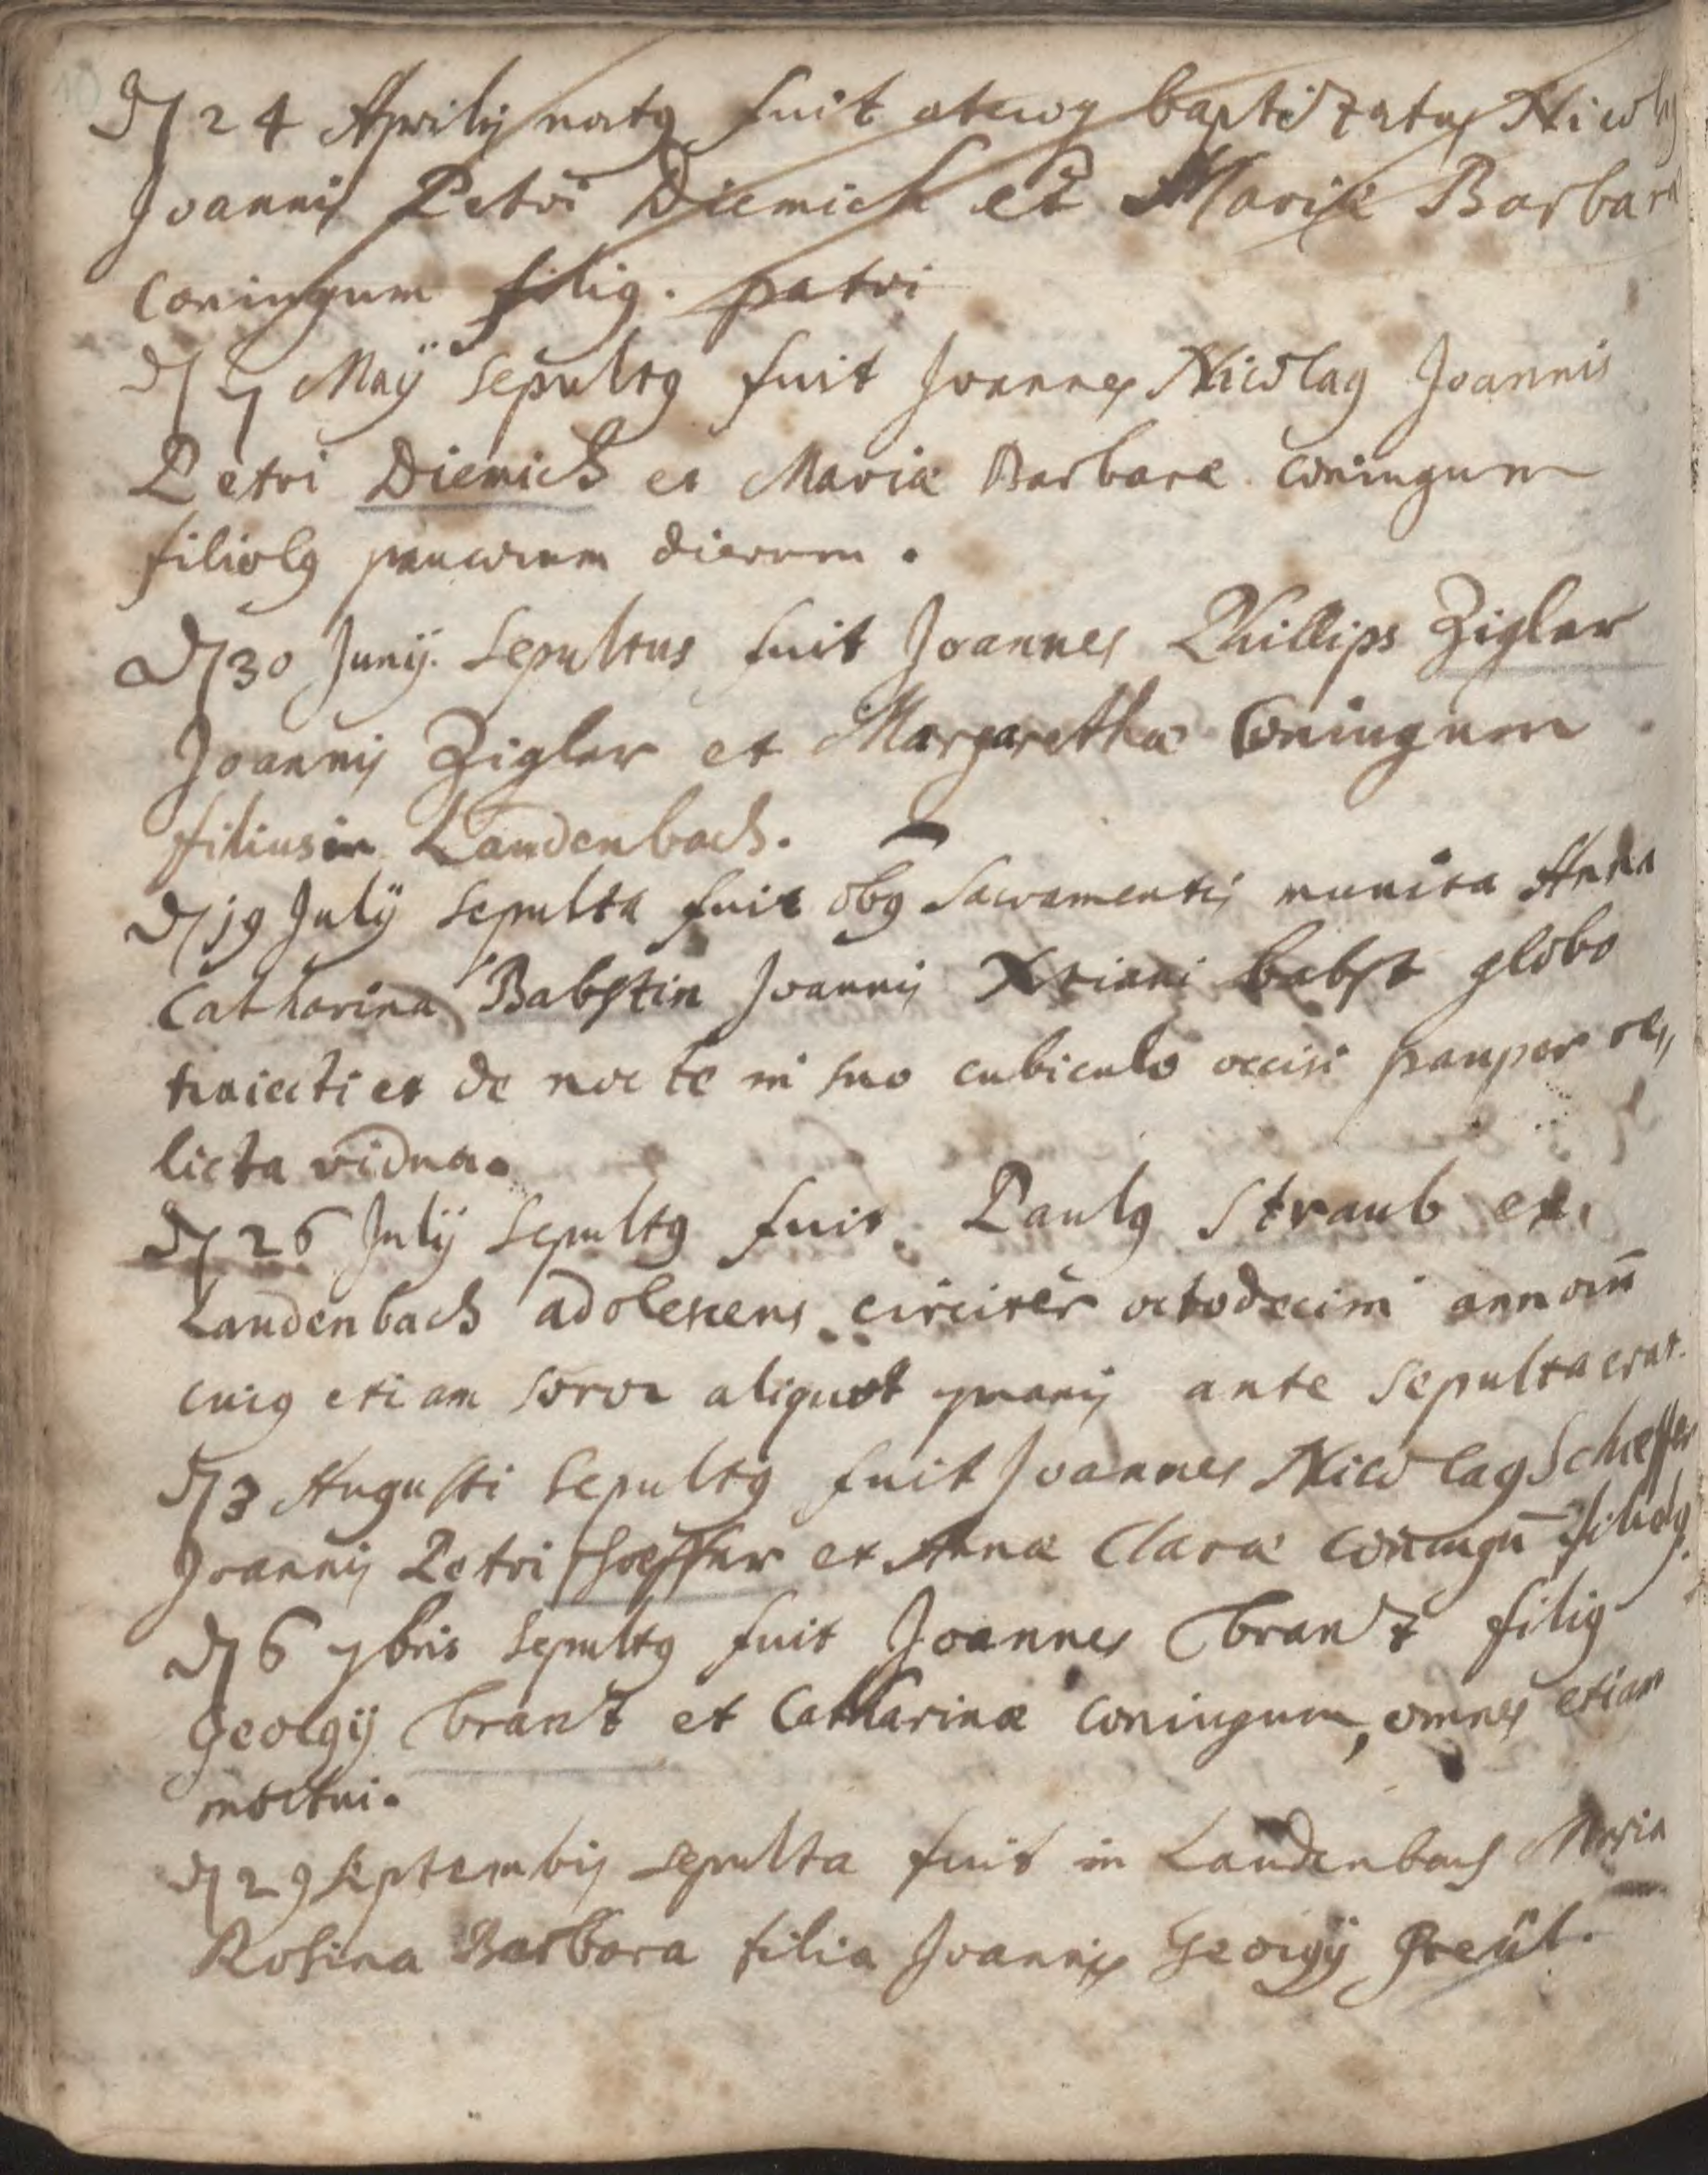 D 24 Aprilis natq fuit atcuq baptiztatus Nicolq
Joannis Petri Diemich et Mariæ Barbaræ
Coniugum filiq. patri
D 5 Maÿ sepultq fuit Joannes Nicolaq Joannis
Petri Diemich et Mariæ Barbaræ coniugum
filiolq paucorum dierum.
D 30 Junÿ. Sepultus fuit Joannes Phillips Zigler
Joannis Zigler et Margarethæ Coniugum
filius in Laudenbach.
D 19 Julÿ sepulta fuit obq Sacramentis munita Anna
Catharina Babstin Joannis Xtiani babst globo
traiecti et de nocte in suo cubiculo occisi pauper re,,
licta vidua.
D 26 Julÿ Sepultq fuit Paulq Straub ex
Laudenbach adolescens circiter octodecim annorū
cuiq etiam soror aliquot ante sepulta erat.
D 3 Augusti Sepultq fuit Joannes Nicolaq Scheffer
Joannis Petri Scheffer et Annæ Claræ coniugū filiolq.
D 6 7bris sepultq fuit Joannes brandt filiq
Georgÿ brandt et Catharinæ coniugum, omnes etiam
mortui.
D 29 Septembris sepulta fuit in Laudenbach Maria
Rosina Barbara filia Joannis Georgÿ Greül.